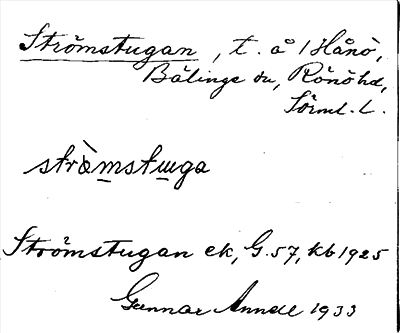 Strömstugan, t. å /Hånö,
Bälinge sn, Rönö hd,
Sörml. l.
stròmstuga
Strömstugan ek, G.57, kb 1925
Gunnar Annell 1933